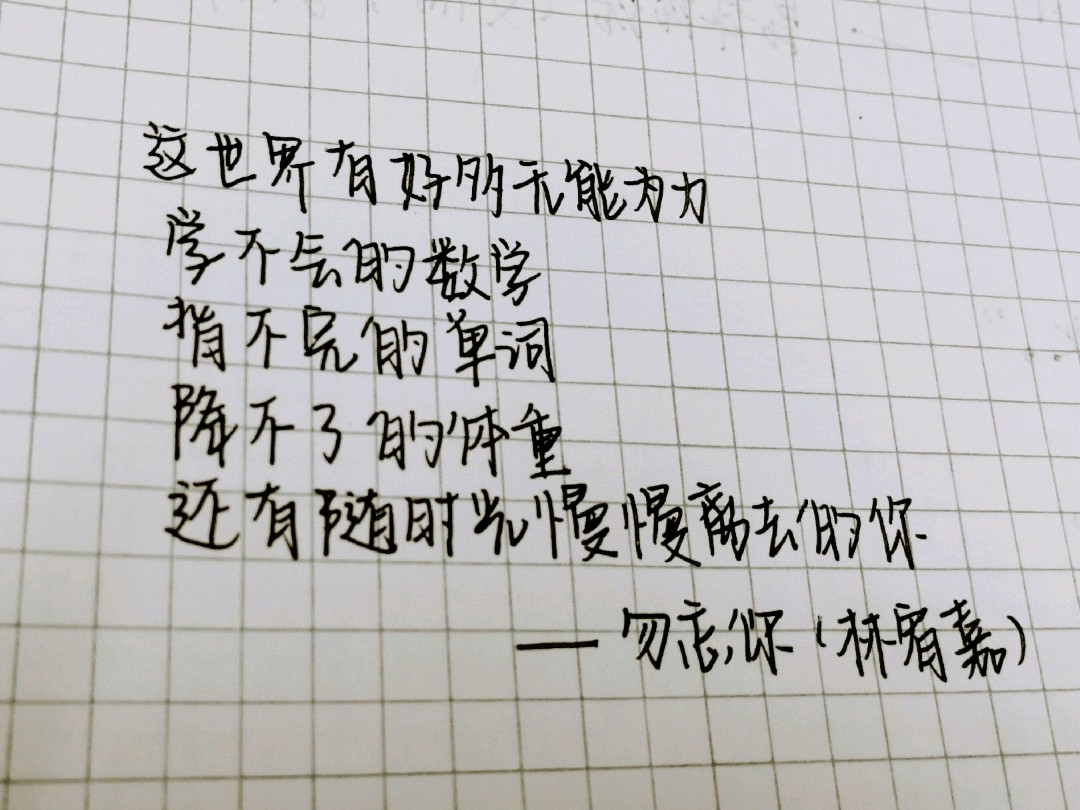 这世界有好多无能为力
学不会的数学
背不完的单词
降不了的体重
还有随时光慢慢离去的你
—— 勿忘你（林宥嘉）